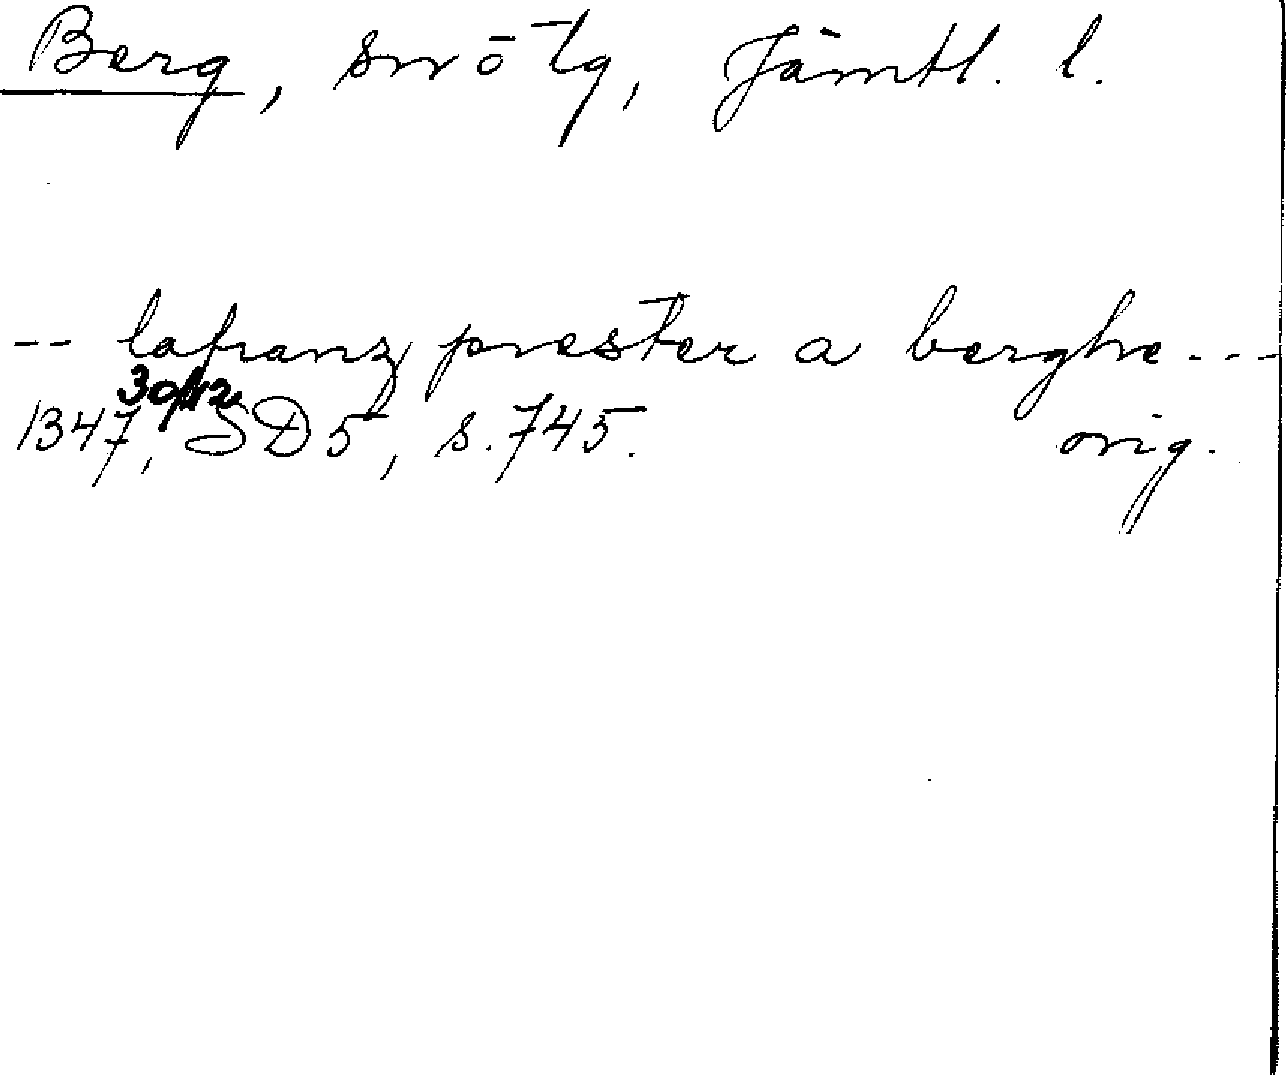 Berg, sn o tg, Jämtl. l.
-- lafranz prester a berghe ---
30/12
1347, SD5, s. 745. orig.